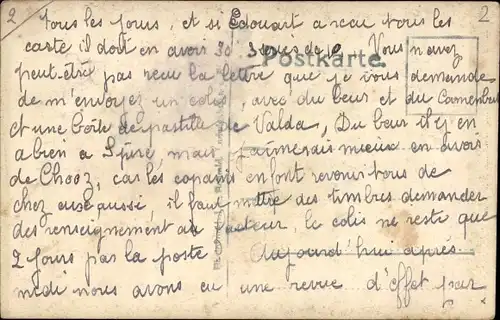 2 tous les jours, et si Edouart a reçu tous les 2
carte il doit en avoir 30. Vous n'avez
Postkarte.
peut-être pas recu la lettre que je vous demande
de m'envoyez un colis, avec du beur et du Camembert
et une boîte de pastille de Valda, Du beur il y en
a bien a Spire, mais j'aimerais mieux en avoir
de Chooz, car les copains en font revenir tous de
chez eux aussi il faut mettre des timbres demander
des renseignement au facteur, le colis ne reste que
2 jours pas la poste aujourd'hui après-
midi nous avons eu une revue d'effet par